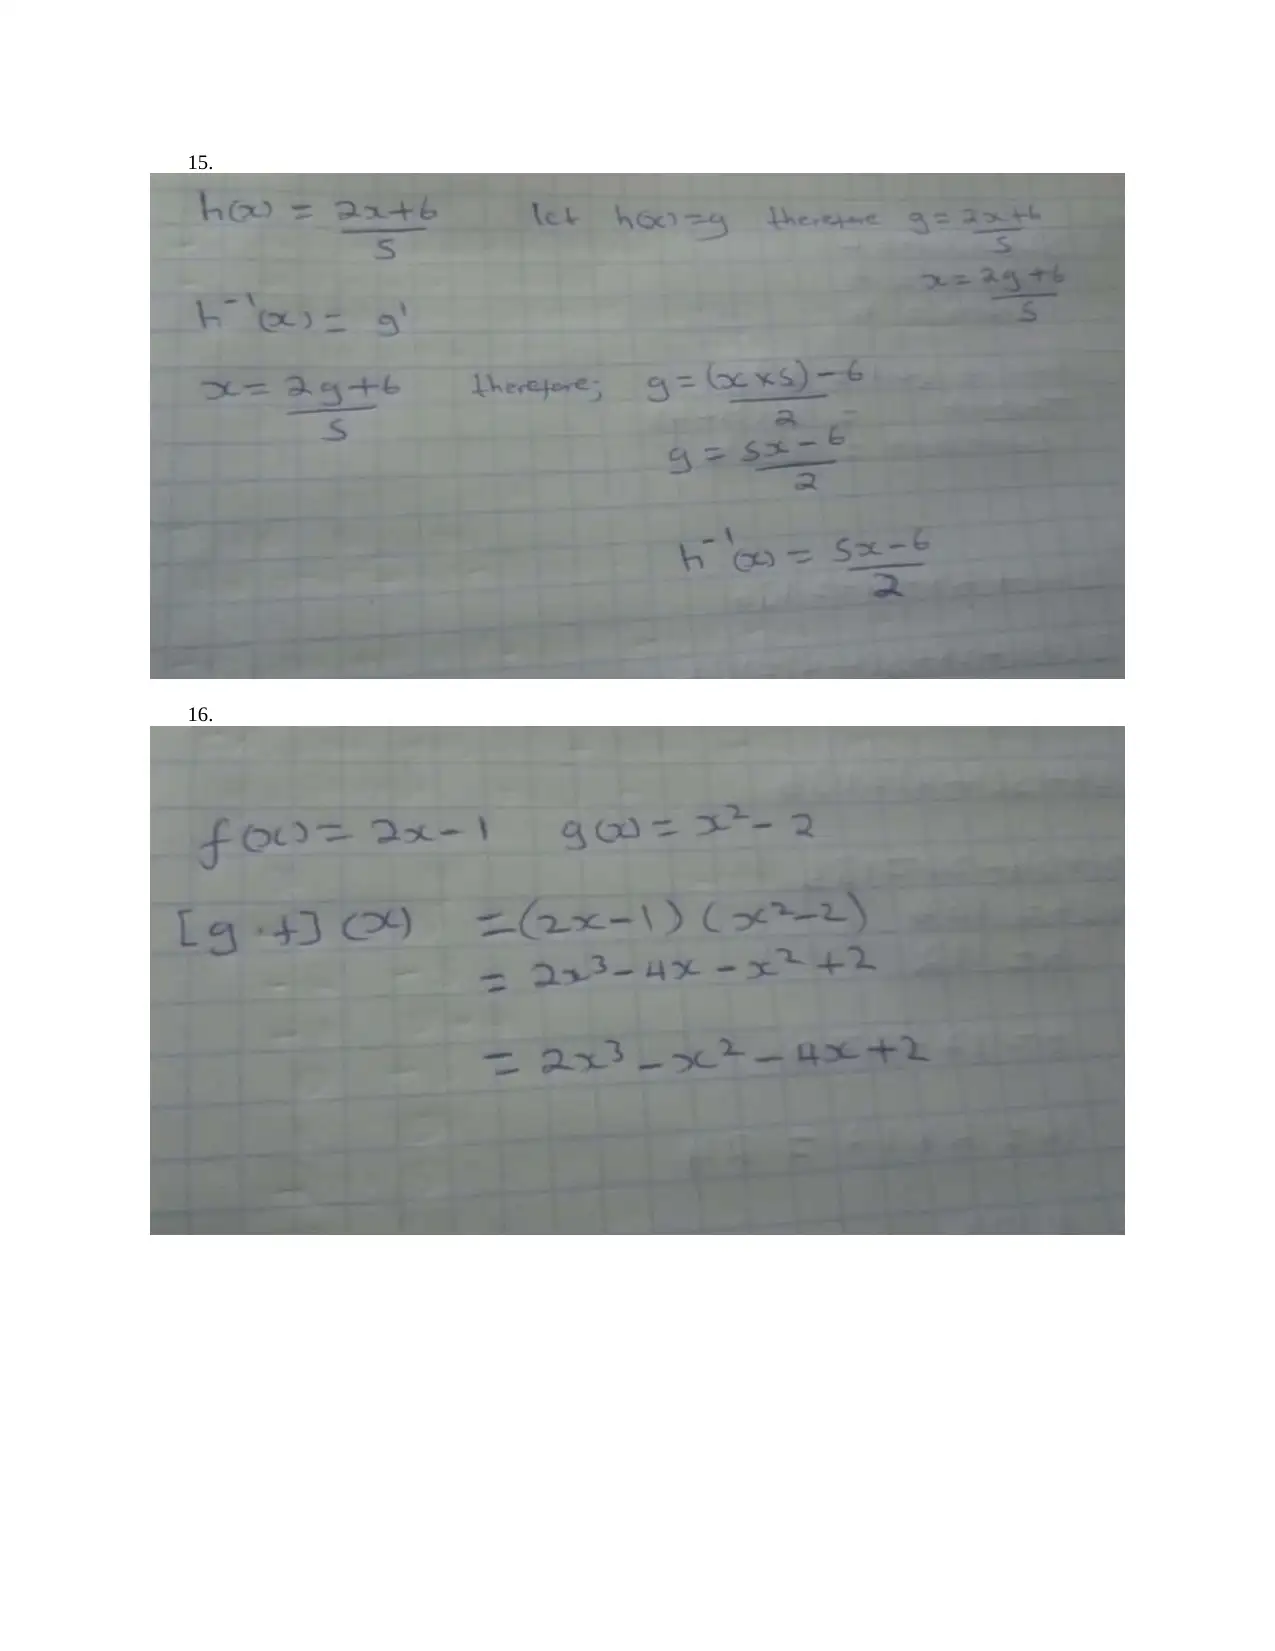 15.
h(x) = 2x+6 let h(x)=y therefore y = 2x+6
5 5
x = 2y+6
5
h⁻¹(x) = y'
x = 2y+6 therefore; y = (x×5)-6
5 2
y = 5x-6
2
h⁻¹(x) = 5x-6
2
16.
f(x) = 2x-1 g(x) = x²-2
[g·f](x) = (2x-1)(x²-2)
= 2x³-4x-x²+2
= 2x³-x²-4x+2